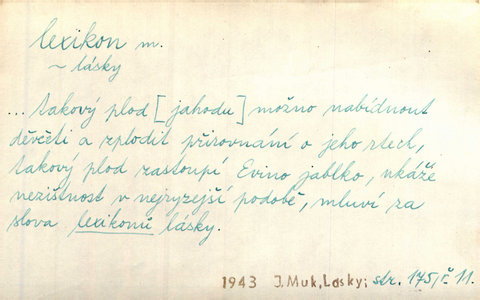 lexikon m.
~ lásky
... takový plod [jahodu] možno nabídnout
děvčeti a zplodit přirovnání o jeho rtech,
takový plod zastoupí Evino jablko, ukáže
nezištnost v nejryzejší podobě, mluví za
slova lexikonů lásky.
1943 J, Muk, Lasky; str. 175/ř. 11.